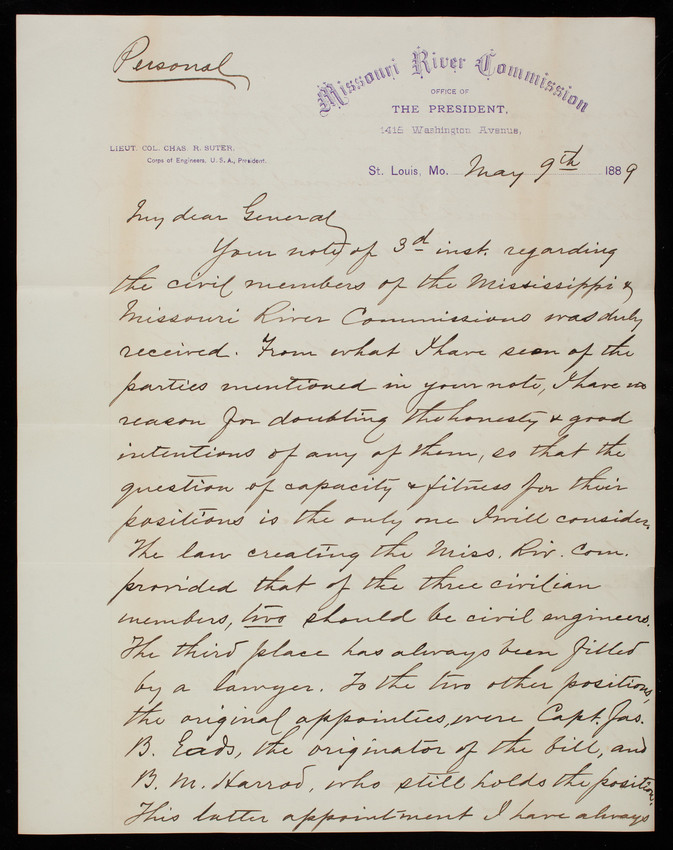 Personal
Missouri River Commission
OFFICE OF
THE PRESIDENT,
1415 Washington Avenue,
LIEUT. COL. CHAS. R. SUTER,
Corps of Engineers, U. S. A., President.
St. Louis, Mo. May 9th 1889
My dear General,
Your note of 3d inst. regarding
the civil members of the Mississippi &
Missouri River Commissions was duly
received. From what I have seen of the
parties mentioned in your note, I have no
reason for doubting the honesty & good
intentions of any of them, so that the
question of capacity & fitness for their
positions is the only one I will consider.
The law creating the Miss. Riv. Com.
provided that of the three civilian
members, two should be civil engineers.
The third place has always been filled
by a lawyer. To the two other positions,
the original appointees, were Capt. Jas.
B. Eads, the originator of the bill, and
B. M. Harrod, who still holds the position.
This latter appointment I have always